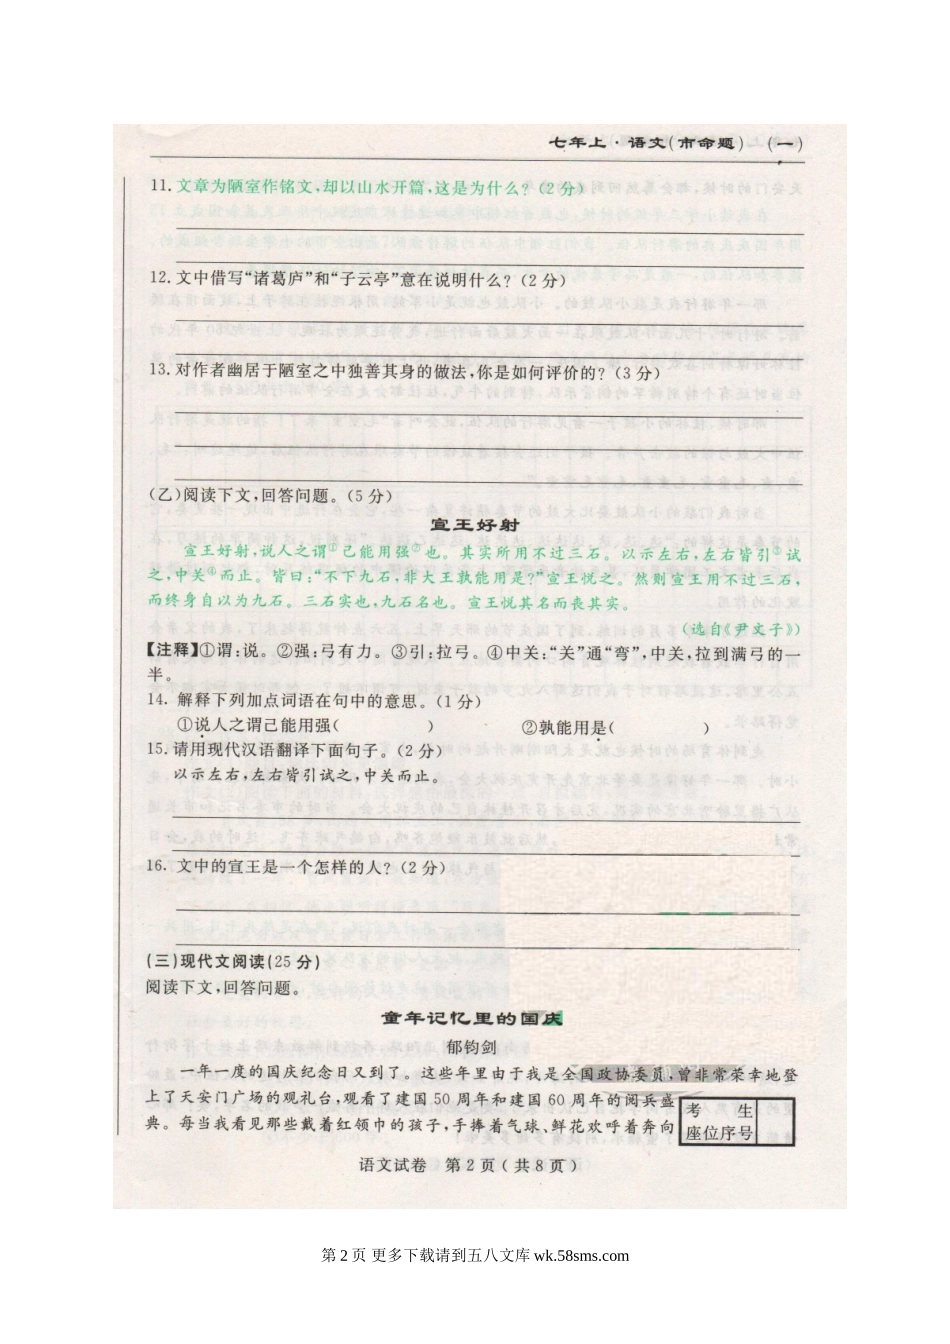 七年上·语文(市命题) (一)
11.文章为陋室作铭文,却以山水开篇,这是为什么?(2分)
12.文中借写“诸葛庐”和“子云亭”意在说明什么?(2分)
13.对作者幽居于陋室之中独善其身的做法,你是如何评价的?(3分)
(乙)阅读下文,回答问题。(5分)
宣王好射
宣王好射,说人之谓①己能用强②也。其实所用不过三石。以示左右,左右皆引③试
之,中关④而止。皆曰:“不下九石,非大王孰能用是?”宣王悦之。然则宣王用不过三石,
而终身自以为九石。三石实也,九石名也。宣王悦其名而丧其实。
(选自《尹文子》)
【注释】①谓:说。②强:弓有力。③引:拉弓。④中关:“关”通“弯”,中关,拉到满弓的一
半。
14. 解释下列加点词语在句中的意思。(1分)
①说人之谓己能用强(          )          ②孰能用是(          )
15.请用现代汉语翻译下面句子。(2分)
以示左右,左右皆引试之,中关而止。
16.文中的宣王是一个怎样的人?(2分)
(三)现代文阅读(25分)
阅读下文,回答问题。
童年记忆里的国庆
郁钧剑
一年一度的国庆纪念日又到了。这些年里由于我是全国政协委员,曾非常荣幸地登
上了天安门广场的观礼台,观看了建国50周年和建国60周年的阅兵盛
典。每当我看见那些戴着红领巾的孩子,手捧着气球、鲜花欢呼着奔向
考 生
座位序号
语文试卷 第2页(共8页)
第 2 页 更多下载请到五八文库 wk.58sms.com